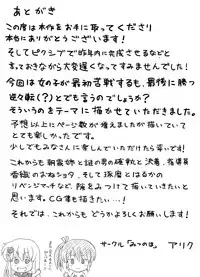 あとがき
この度は本作をお手に取ってくださり
本当にありがとうございます!
そしてピクシブで昨年内に完成させるなどと
言っておきながら大変遅くなってすみませんでした!
今回は女の子が最初苦戦するも、最後に勝つ
逆々転(?)とでも言うのでしょうか?
そういうのをテーマに描かせていただきました。
予想以上にページ数が増えましたが描いていて
とても楽しかったです。
少しでもみなさんに楽しんでいただけたら幸いです!
これからも朝霧姉と謎の男の確執と決着、指導員
香織のまねショタ、そして琢磨とはるかの
リベンジマッチなど、隙をみつけて描いていきたいと
思います。CG集も描きたい…!
それでは、これからもどうかよろしくお願いします!
サークル「みつのは」 アリク